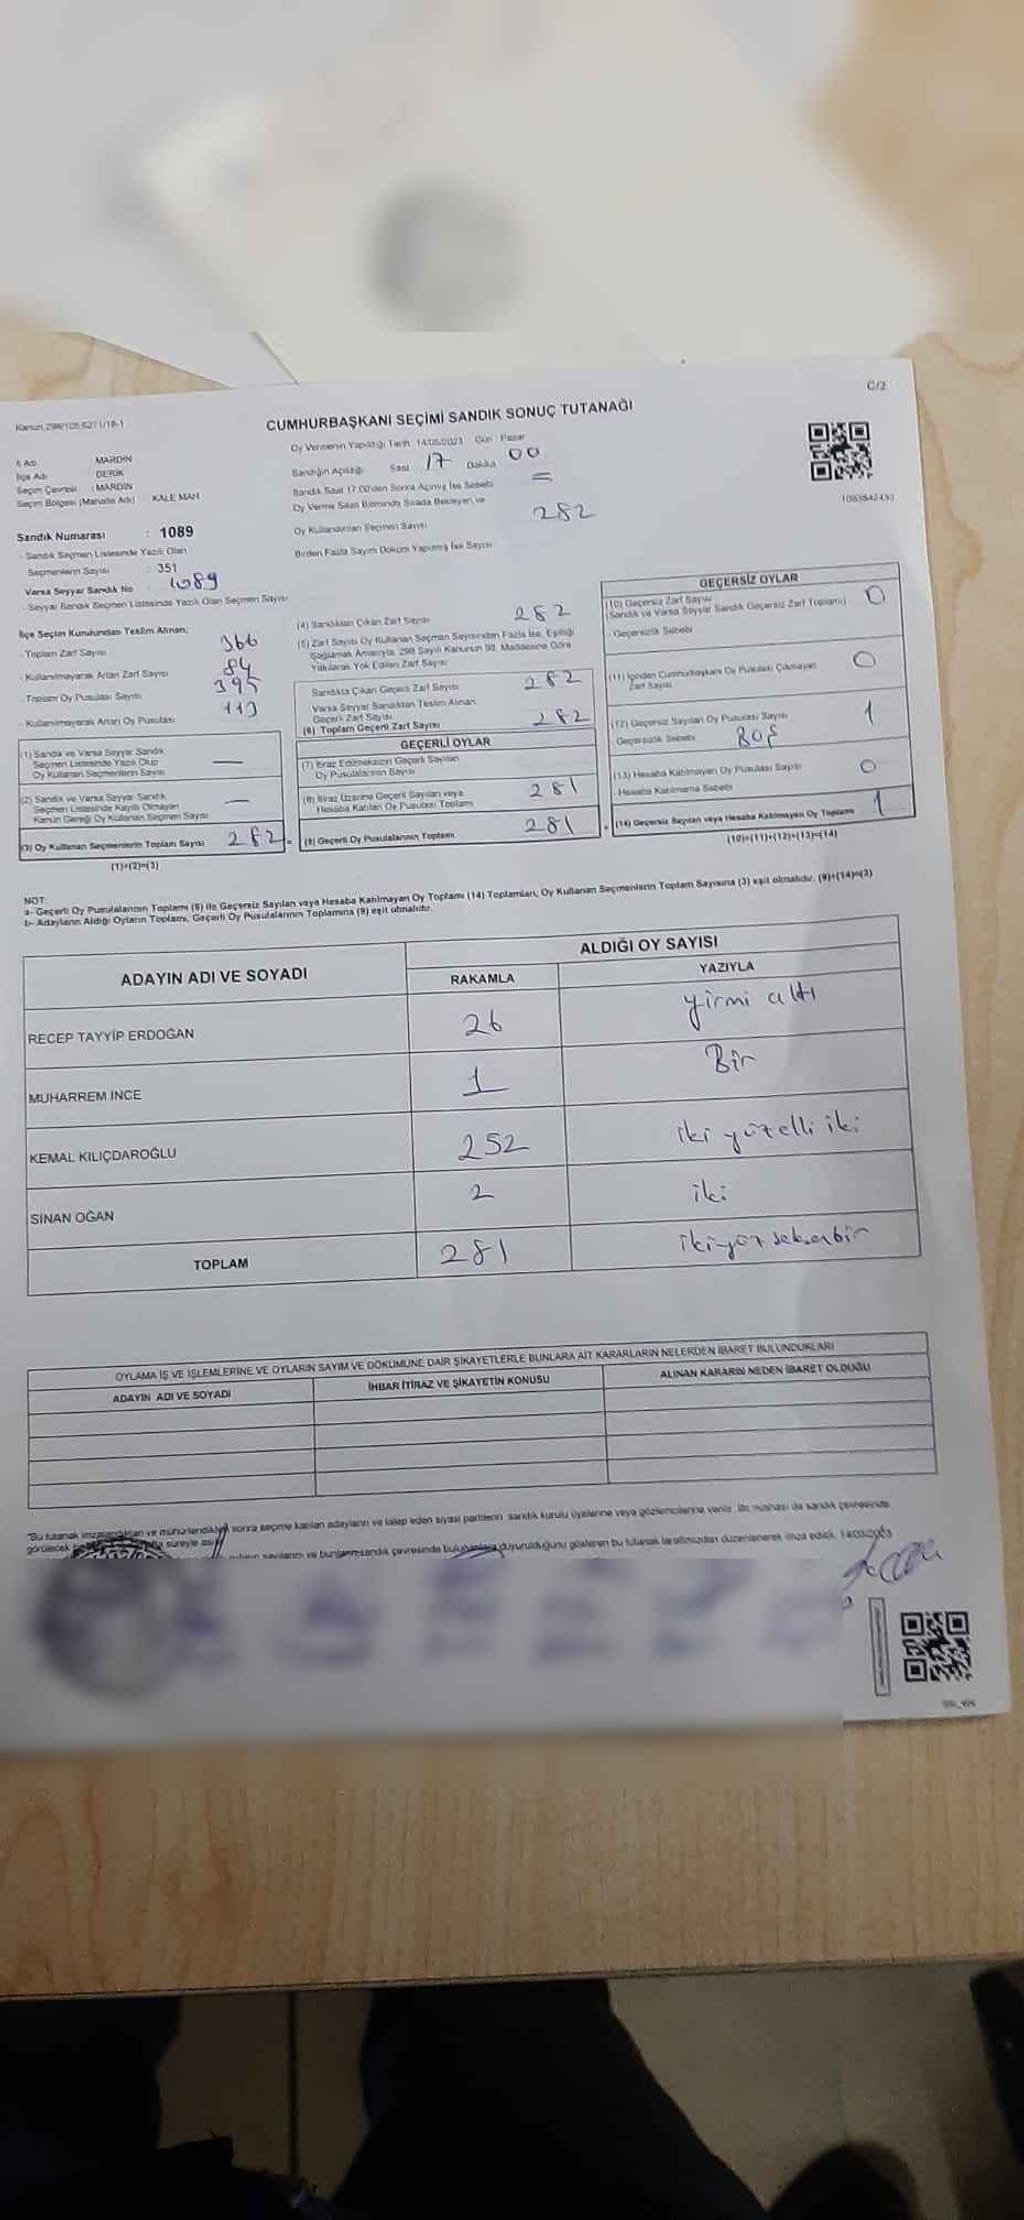 C/2
Kanun 298/105 6271/18-1
CUMHURBAŞKANI SEÇİMİ SANDIK SONUÇ TUTANAĞI
İl Adı MARDİN
İlçe Adı DERİK
Seçim Çevresi : MARDİN
Seçim Bölgesi (Mahalle Adı) KALE MAH
Sandık Numarası : 1089
Sandık Seçmen Listesinde Yazılı Olan
Seçmenlerin Sayısı : 351
Varsa Seyyar Sandık No 1089
Seyyar Sandık Seçmen Listesinde Yazılı Olan Seçmen Sayısı
Oy Vermenin Yapıldığı Tarih 14/05/2023 Gün Pazar
Sandığın Açıldığı Saat 17 Dakika 00
Sandık Saat 17:00'den Sonra Açılmış İse Sebebi
Oy Verme Saati Bitiminde Sırada Bekleyen ve
Oy Kullandırılan Seçmen Sayısı 282
Birden Fazla Sayım Döküm Yapılmış İse Sayısı
1083842432
İlçe Seçim Kurulundan Teslim Alınan;
- Toplam Zarf Sayısı 366
- Kullanılmayarak Artan Zarf Sayısı 84
- Toplam Oy Pusulası Sayısı 395
- Kullanılmayarak Artan Oy Pusulası 113
(1) Sandık ve Varsa Seyyar Sandık
Seçmen Listesinde Yazılı Olup
Oy Kullanan Seçmenlerin Sayısı —
(2) Sandık ve Varsa Seyyar Sandık
Seçmen Listesinde Kayıtlı Olmayan
Kanun Gereği Oy Kullanan Seçmen Sayısı —
(3) Oy Kullanan Seçmenlerin Toplam Sayısı 282
(1)+(2)=(3)
(4) Sandıktan Çıkan Zarf Sayısı 282
(5) Zarf Sayısı Oy Kullanan Seçmen Sayısından Fazla İse, Eşitliği
Sağlamak Amacıyla, 298 Sayılı Kanunun 98. Maddesine Göre
Yakılarak Yok Edilen Zarf Sayısı
Sandıkta Çıkan Geçerli Zarf Sayısı 282
Varsa Seyyar Sandıktan Teslim Alınan
Geçerli Zarf Sayısı
(6) Toplam Geçerli Zarf Sayısı 282
GEÇERLİ OYLAR
(7) İtiraz Edilmeksizin Geçerli Sayılan
Oy Pusulalarının Sayısı
(8) İtiraz Üzerine Geçerli Sayılan veya
Hesaba Katılan Oy Pusulası Toplamı 281
(9) Geçerli Oy Pusulalarının Toplamı 281
GEÇERSİZ OYLAR
(10) Geçersiz Zarf Sayısı
(Sandık ve Varsa Seyyar Sandık Geçersiz Zarf Toplamı) 0
Geçersizlik Sebebi
(11) İçinden Cumhurbaşkanı Oy Pusulası Çıkmayan
Zarf Sayısı 0
(12) Geçersiz Sayılan Oy Pusulası Sayısı 1
Geçersizlik Sebebi BOŞ
(13) Hesaba Katılmayan Oy Pusulası Sayısı 0
Hesaba Katılmama Sebebi
(14) Geçersiz Sayılan veya Hesaba Katılmayan Oy Toplamı 1
(10)+(11)+(12)+(13)=(14)
NOT
a- Geçerli Oy Pusulalarının Toplamı (9) ile Geçersiz Sayılan veya Hesaba Katılmayan Oy Toplamı (14) Toplamları, Oy Kullanan Seçmenlerin Toplam Sayısına (3) eşit olmalıdır. (9)+(14)=(3)
b- Adayların Aldığı Oyların Toplamı, Geçerli Oy Pusulalarının Toplamına (9) eşit olmalıdır.
ADAYIN ADI VE SOYADI ALDIĞI OY SAYISI
RAKAMLA YAZIYLA
RECEP TAYYİP ERDOĞAN 26 yirmi altı
MUHARREM İNCE 1 Bir
KEMAL KILIÇDAROĞLU 252 iki yüzelli iki
SİNAN OĞAN 2 iki
TOPLAM 281 ikiyüz seksenbir
OYLAMA İŞ VE İŞLEMLERİNE VE OYLARIN SAYIM VE DÖKÜMÜNE DAİR ŞİKAYETLERLE BUNLARA AİT KARARLARIN NELERDEN İBARET BULUNDUKLARI
ADAYIN ADI VE SOYADI İHBAR İTİRAZ VE ŞİKAYETİN KONUSU ALINAN KARARIN NEDEN İBARET OLDUĞU
"Bu tutanak imzalandıktan ve mühürlendikten sonra seçime katılan adayların ve talep eden siyasi partilerin sandık kurulu üyelerine veya gözlemcilerine verilir. Bir nüshası da sandık çevresinde
görülecek süreyle
sayılarını ve bunların sandık çevresinde bulunanlara duyurulduğunu gösteren bu tutanak tarafımızdan düzenlenerek imza edildi. 14/05/2023